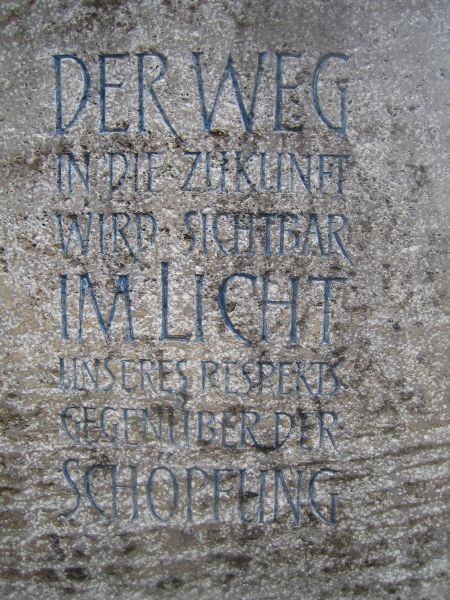 DER WEG
IN DIE ZUKUNFT
WIRD SICHTBAR
IM LICHT
UNSERES RESPEKTS
GEGENÜBER DER
SCHÖPFUNG